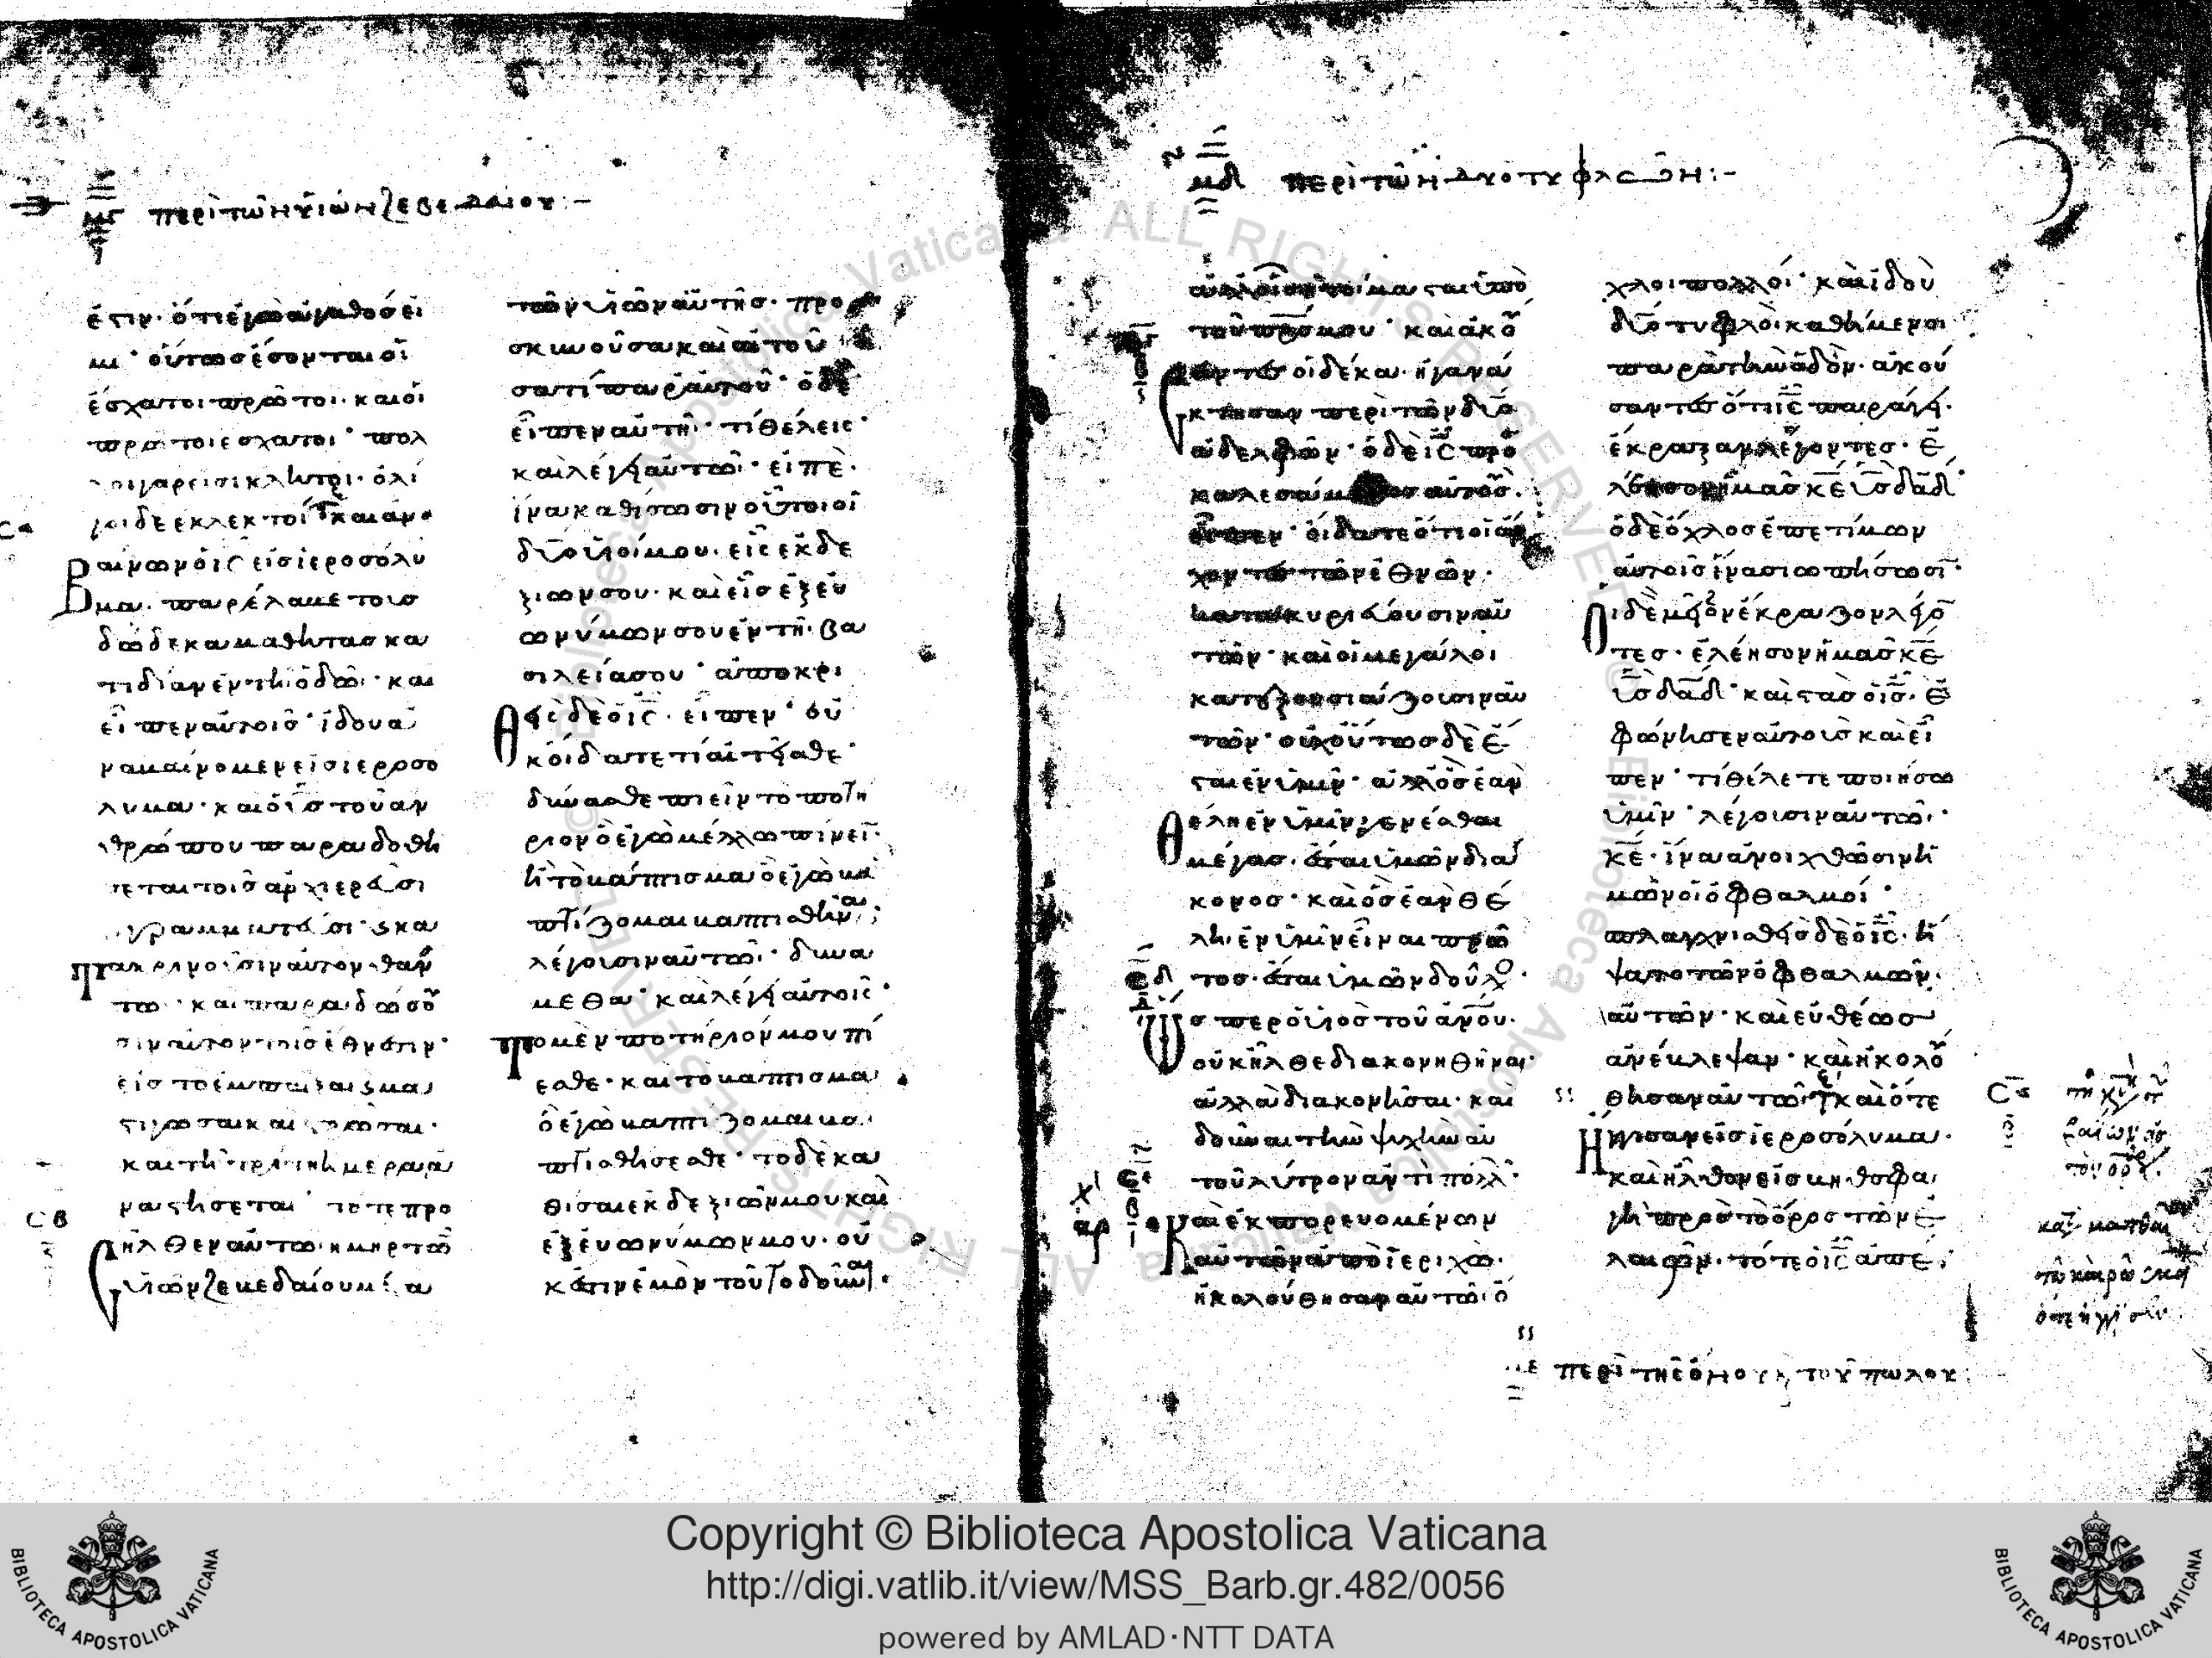 μγ περὶ τῶν υἱῶν ζεβεδαίου :-
ἐστιν· ὅτι ἐγὼ ἀγαθός εἰ
μι· οὕτως ἔσονται οἱ
ἔσχατοι πρῶτοι· καὶ οἱ
πρῶτοι ἔσχατοι· πολ
γάρ εἰσι κλητοι· ὀλί
γοι δὲ ἐκλεκτοί καὶ ἀνα
βαίνων ὁ ις εἰς ἱεροσόλυ
μα· παρέλαβε τοὺς
δώδεκα μαθητὰς κα
τιδίαν ἐν τῆ ὁδῶ· και
εἶπεν αὐτοῖς· ἰδου ἀ
ναβαίνομεν εἰς ιεροσο
λυμα· καὶ ὁ υς τοῦ αν
θρώπου παραδοθή
σεται τοῖς ἀρχιερεῦσι
γραμματεῦσι· κα
τακρινοῦσιν αὐτὸν θαν
τω· καὶ παραδώσου
σιν αὐτον τοῖς ἔθνεσιν·
εἰς τὸ ἐμπαῖξαι μα
στιγῶσαι καὶ σταυρῶσαι·
καὶ τῆ τρίτη ἡμέρα ἀ
ναστήσεται τότε προ
σῆλθεν αὐτῶ ἡ μηρ τῶν
υἱῶν ζεβεδαίου μετὰ
σα
σβ
τῶν υἱῶν αὐτῆς· προ
σκυνοῦσα καὶ αἰτοῦ
σα τί παρ' αὐτοῦ· ὁ δὲ
εἶπεν αὐτῆ· τί θέλεις·
καὶ λέγει αὐτῶ· εἰπὲ·
ἵνα καθίσωσιν οὗτοι οἱ
δύο υἱοί μου· εἷς ἐκ δε
ξιῶν σου· καὶ εἷς ἐξ εὐ
ωνύμων σου ἐν τῆ βα
σιλεία σου· ἀποκρι
θεὶς δὲ ὁ ις· εἶπεν· οὐ
κ οἴδατε τί αἰτεῖσθε·
δύνασθε πιεῖν τὸ ποτή
ριον ὃ ἐγὼ μέλλω πίνειν·
ἢ τὸ βάπτισμα ὃ ἐγὼ βα
πτίζομαι βαπτισθῆναι;
λέγουσιν αὐτῶ· δυνά
μεθα· καὶ λέγει αὐτοῖς·
τὸ μὲν ποτήριόν μου πί
εσθε· καὶ τὸ βάπτισμα
ὃ ἐγὼ βαπτίζομαι βα
πτισθήσεσθε· τὸ δὲ κα
θίσαι ἐκ δεξιῶν μου καὶ
ἐξ εὐωνύμων μου· οὐ
κ ἔστιν ἐμὸν τοῦτο δοῦναι·
μδ περὶ τῶν δύο τυφλῶν :-
ἀλλ' οἷς ἡτοίμασται ὑπὸ
τοῦ πρς μου· καὶ ἀκού
σαντες οἱ δέκα· ἠγανά
κτησαν περὶ τῶν δύο
ἀδελφῶν· ὁ δὲ ις προσ
καλεσάμενος αὐτοὺς·
εἶπεν· οἴδατε ὅτι οἱ ἄρ
χοντες τῶν ἐθνῶν·
κατακυριεύουσιν αὐ
τῶν· καὶ οἱ μεγάλοι
κατεξουσιάζουσιν αὐ
τῶν· οὐχ οὕτως δὲ ἔ
σται ἐν ὑμῖν· ἀλλ' ὃς ἐὰν
θέλη ἐν ὑμῖν γενέσθαι
μέγας· ἔσται ὑμῶν διά
κονος· καὶ ὃς ἐὰν θέ
λη ἐν ὑμῖν εἶναι πρῶ
τος· ἔσται ὑμῶν δοῦλος·
ὥσπερ ὁ υἱὸς τοῦ ἀνου·
οὐκ ἦλθε διακονηθῆναι·
ἀλλὰ διακονῆσαι· καὶ
δοῦναι τὴν ψυχὴν αὐ
τοῦ λύτρον ἀντὶ πολλ·
καὶ ἐκπορευομένων
αὐτῶν ἀπὸ ἱεριχὼ·
ἠκολούθησαν αὐτῶ ὄ
σδ
σε
αρ
χλοι πολλοί· καὶ ἰδοὺ
δύο τυφλοὶ καθήμενοι
παρὰ τὴν ὁδὸν· ἀκού
σαντες ὅτι ις παράγει·
ἔκραξαν λέγοντες· ἐ
λέησον ἡμᾶς κε υς δαδ
ὁ δὲ ὄχλος ἐπετίμων
αὐτοῖς ἵνα σιωπήσωσι·
οἱ δὲ μεῖζον ἔκραζον λέγο
τες· ἐλέησον ἡμᾶς κε
υς δαδ· καὶ στὰς ὁ ις· ἐ
φώνησεν αὐτοὺς καὶ εἶ
πεν· τί θέλετε ποιήσω
ὑμῖν· λέγουσιν αὐτῶ·
κε· ἵνα ἀνοιχθῶσιν ἡ
μῶν οἱ ὀφθαλμοί·
σπλαγχνισθεὶς δὲ ὁ ις· ἥ
ψατο τῶν ὀφθαλμῶν·
αὐτῶν· καὶ εὐθέως
ἀνέβλεψαν· καὶ ἠκολού
θησαν αὐτῶ· καὶ ὅτε
ἤγγισαν εἰς ἱεροσόλυμα·
καὶ ἦλθον εἰς βηθσφα
γὴ πρὸς τὸ ὄρος τῶν ἐ
λαιῶν· τότε ὁ ις ἀπέ
σς
με περὶ τῆς ὄνου καὶ τοῦ πώλου
Copyright © Biblioteca Apostolica Vaticana
http://digi.vatlib.it/view/MSS_Barb.gr.482/0056
powered by AMLAD·NTT DATA
BIBLIOTECA APOSTOLICA VATICANA
BIBLIOTECA APOSTOLICA VATICANA